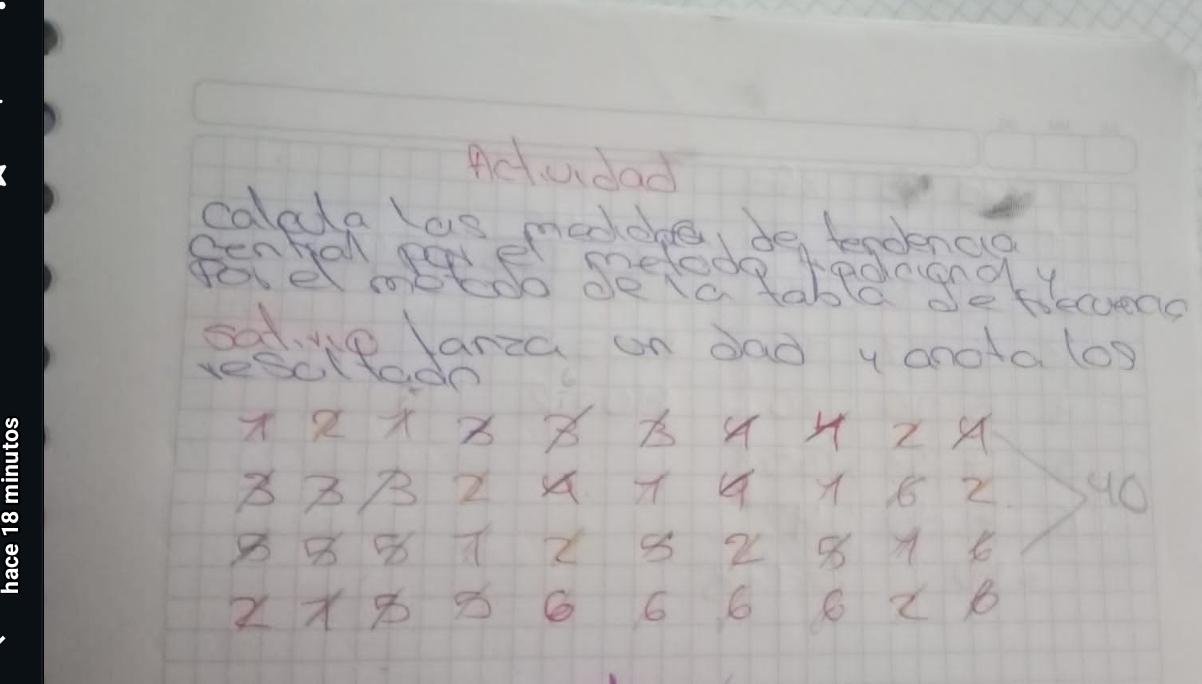 hace 18 minutos
Actividad
calcula las medidas de tendencia
central por el metodo y
por el metodo de la tabla de
lanza un dad y anota los
resultado
1 2 1 3 3 3 4 4 2 4
3 3 3 2 4 1 4 1 6 2
5 5 5 1 2 5 2 5 1 6
2 1 5 5 6 6 6 6 2 6
40